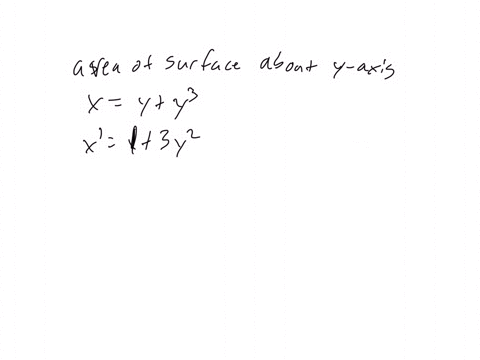 area of surface about y-axis
x = y + y³
x' = 1 + 3y²